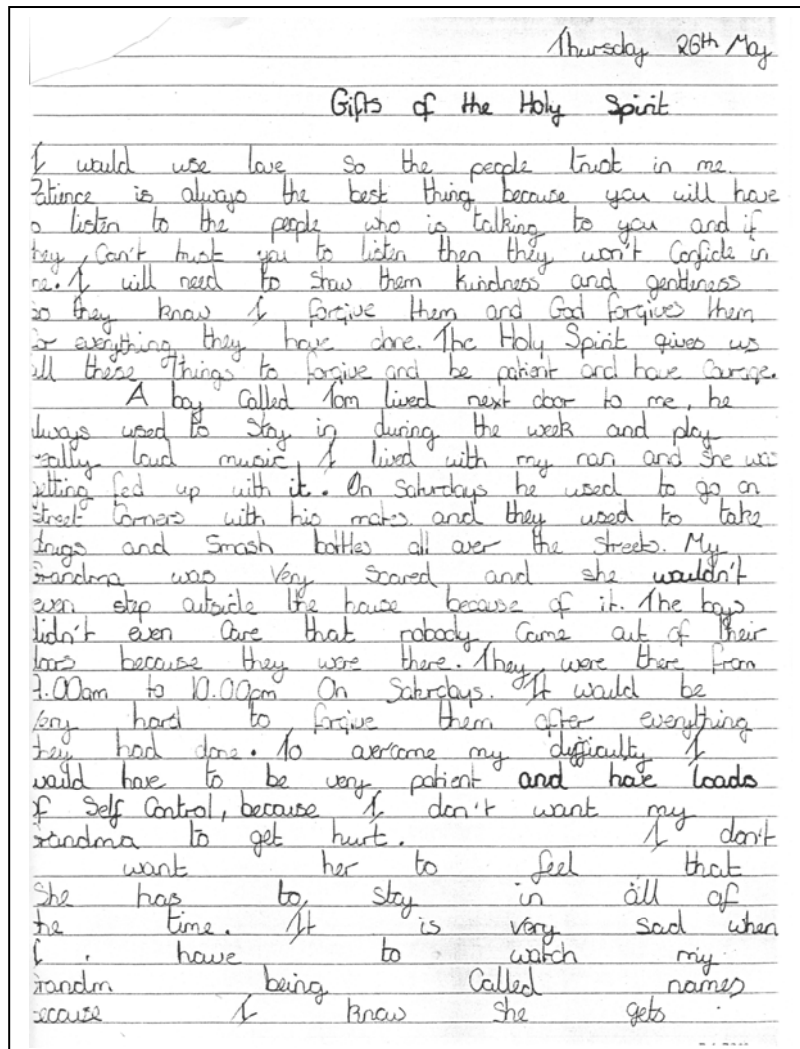 Thursday 26th May
Gifts of the Holy Spirit
I would use love so the people trust in me.
Patience is always the best thing because you will have
o listen to the people who is talking to you and if
hey, Can't trust you to listen then they won't Confide in
me. I will need to show them kindness and gentleness
so they know I forgive them and God forgives them
for everything they have done. The Holy Spirit gives us
all these things to forgive and be patient and have Courage.
A boy Called Tom lived next door to me, he
lways used to stay in during the week and play
really loud music, I lived with my nan and she was
etting fed up with it. On Saturdays he used to go on
Street Corners with his mates and they used to take
drugs and Smash bottles all over the streets. My
Grandma was Very Scared and she wouldn't
even step outside the house because of it. The boys
didn't even Care that nobody Came out of their
doors because they were there. They were there from
.00am to 10.00pm On Saturdays. It would be
very hard to forgive them after everything
they had done. To overcome my difficulty I
would have to be very patient and have loads
of Self Control, because I don't want my
Grandma to get hurt. I don't
want her to feel that
She has to stay in all of
he time. It is very sad when
I have to watch my
Grandm being Called names
ecause I know she gets